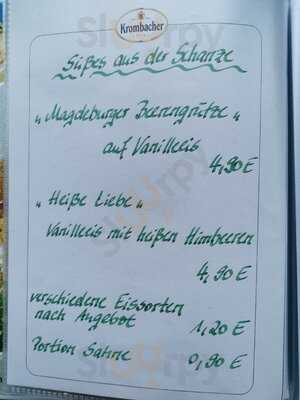 Krombacher
Süßes aus der Schanze
„Magdeburger Beerengrütze"
auf Vanilleeis
4,90 €
„Heiße Liebe"
Vanilleeis mit heißen Himbeeren
4,90 €
verschiedene Eissorten
nach Angebot 1,20 €
Portion Sahne 0,90 €